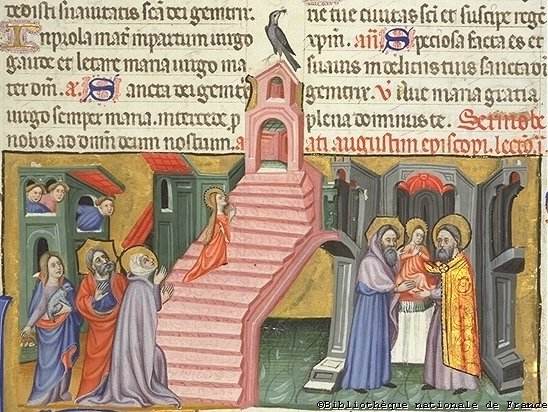 te dedisti suavitatis scā dei genitrix.
In prola mat in partum virgo
gaude et letare maria virgo ma
ter dñi. a Sancta dei genitrix
virgo semper maria. intercede p
nobis ad dñm deum nostrum. a
ne tue civitas sci et suscipe regē
xpm. añ Speciosa facta es et
suavis in deliciis tuis sancta di
genitrix. V Ave maria gratia
plena dominus te. Sermo be
ati augustini episcopi. lectio. i
©Bibliothèque nationale de France